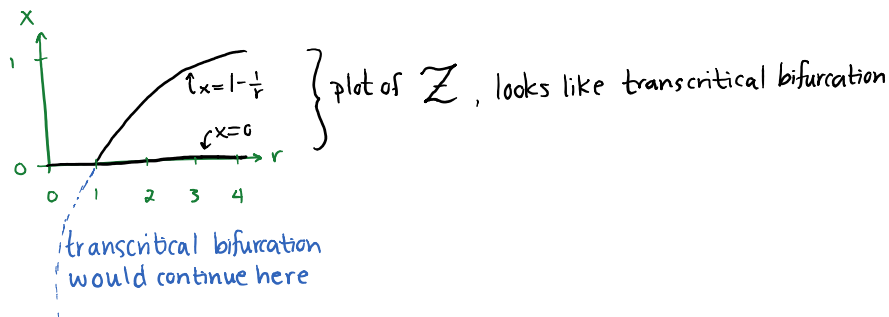 x
1
x=1-1/r
} plot of Z, looks like transcritical bifurcation
x=0
0
r
0 1 2 3 4
transcritical bifurcation
would continue here